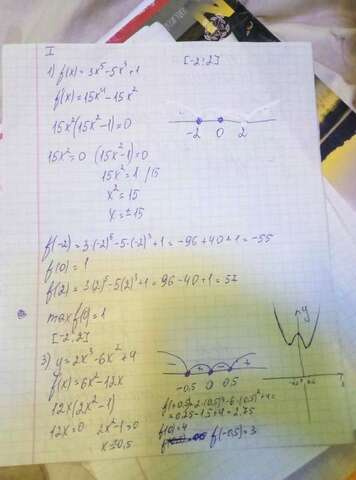 I
1) f(x) = 3x⁵ - 5x³ + 1 [-2; 2]
f(x) = 15x⁴ - 15x²
15x²(15x² - 1) = 0
-2 0 2
15x² = 0 (15x² - 1) = 0
15x² = 1 /15
x² = 15
x = ±15
f(-2) = 3·(-2)⁵ - 5·(-2)³ + 1 = -96 + 40 + 1 = -55
f(0) = 1
f(2) = 3(2)⁵ - 5(2)³ + 1 = 96 - 40 + 1 = 57
max f(0) = 1
[-2; 2]
3) y = 2x³ - 6x² + 4
f(x) = 6x² - 12x
-0,5 0 0,5
y
12x(2x² - 1)
12x = 0 2x² - 1 = 0
x = ±0,5
= 0,25 - 1,5 + 4 = 2,75
f(0) = 4
f(-0,5) = 3